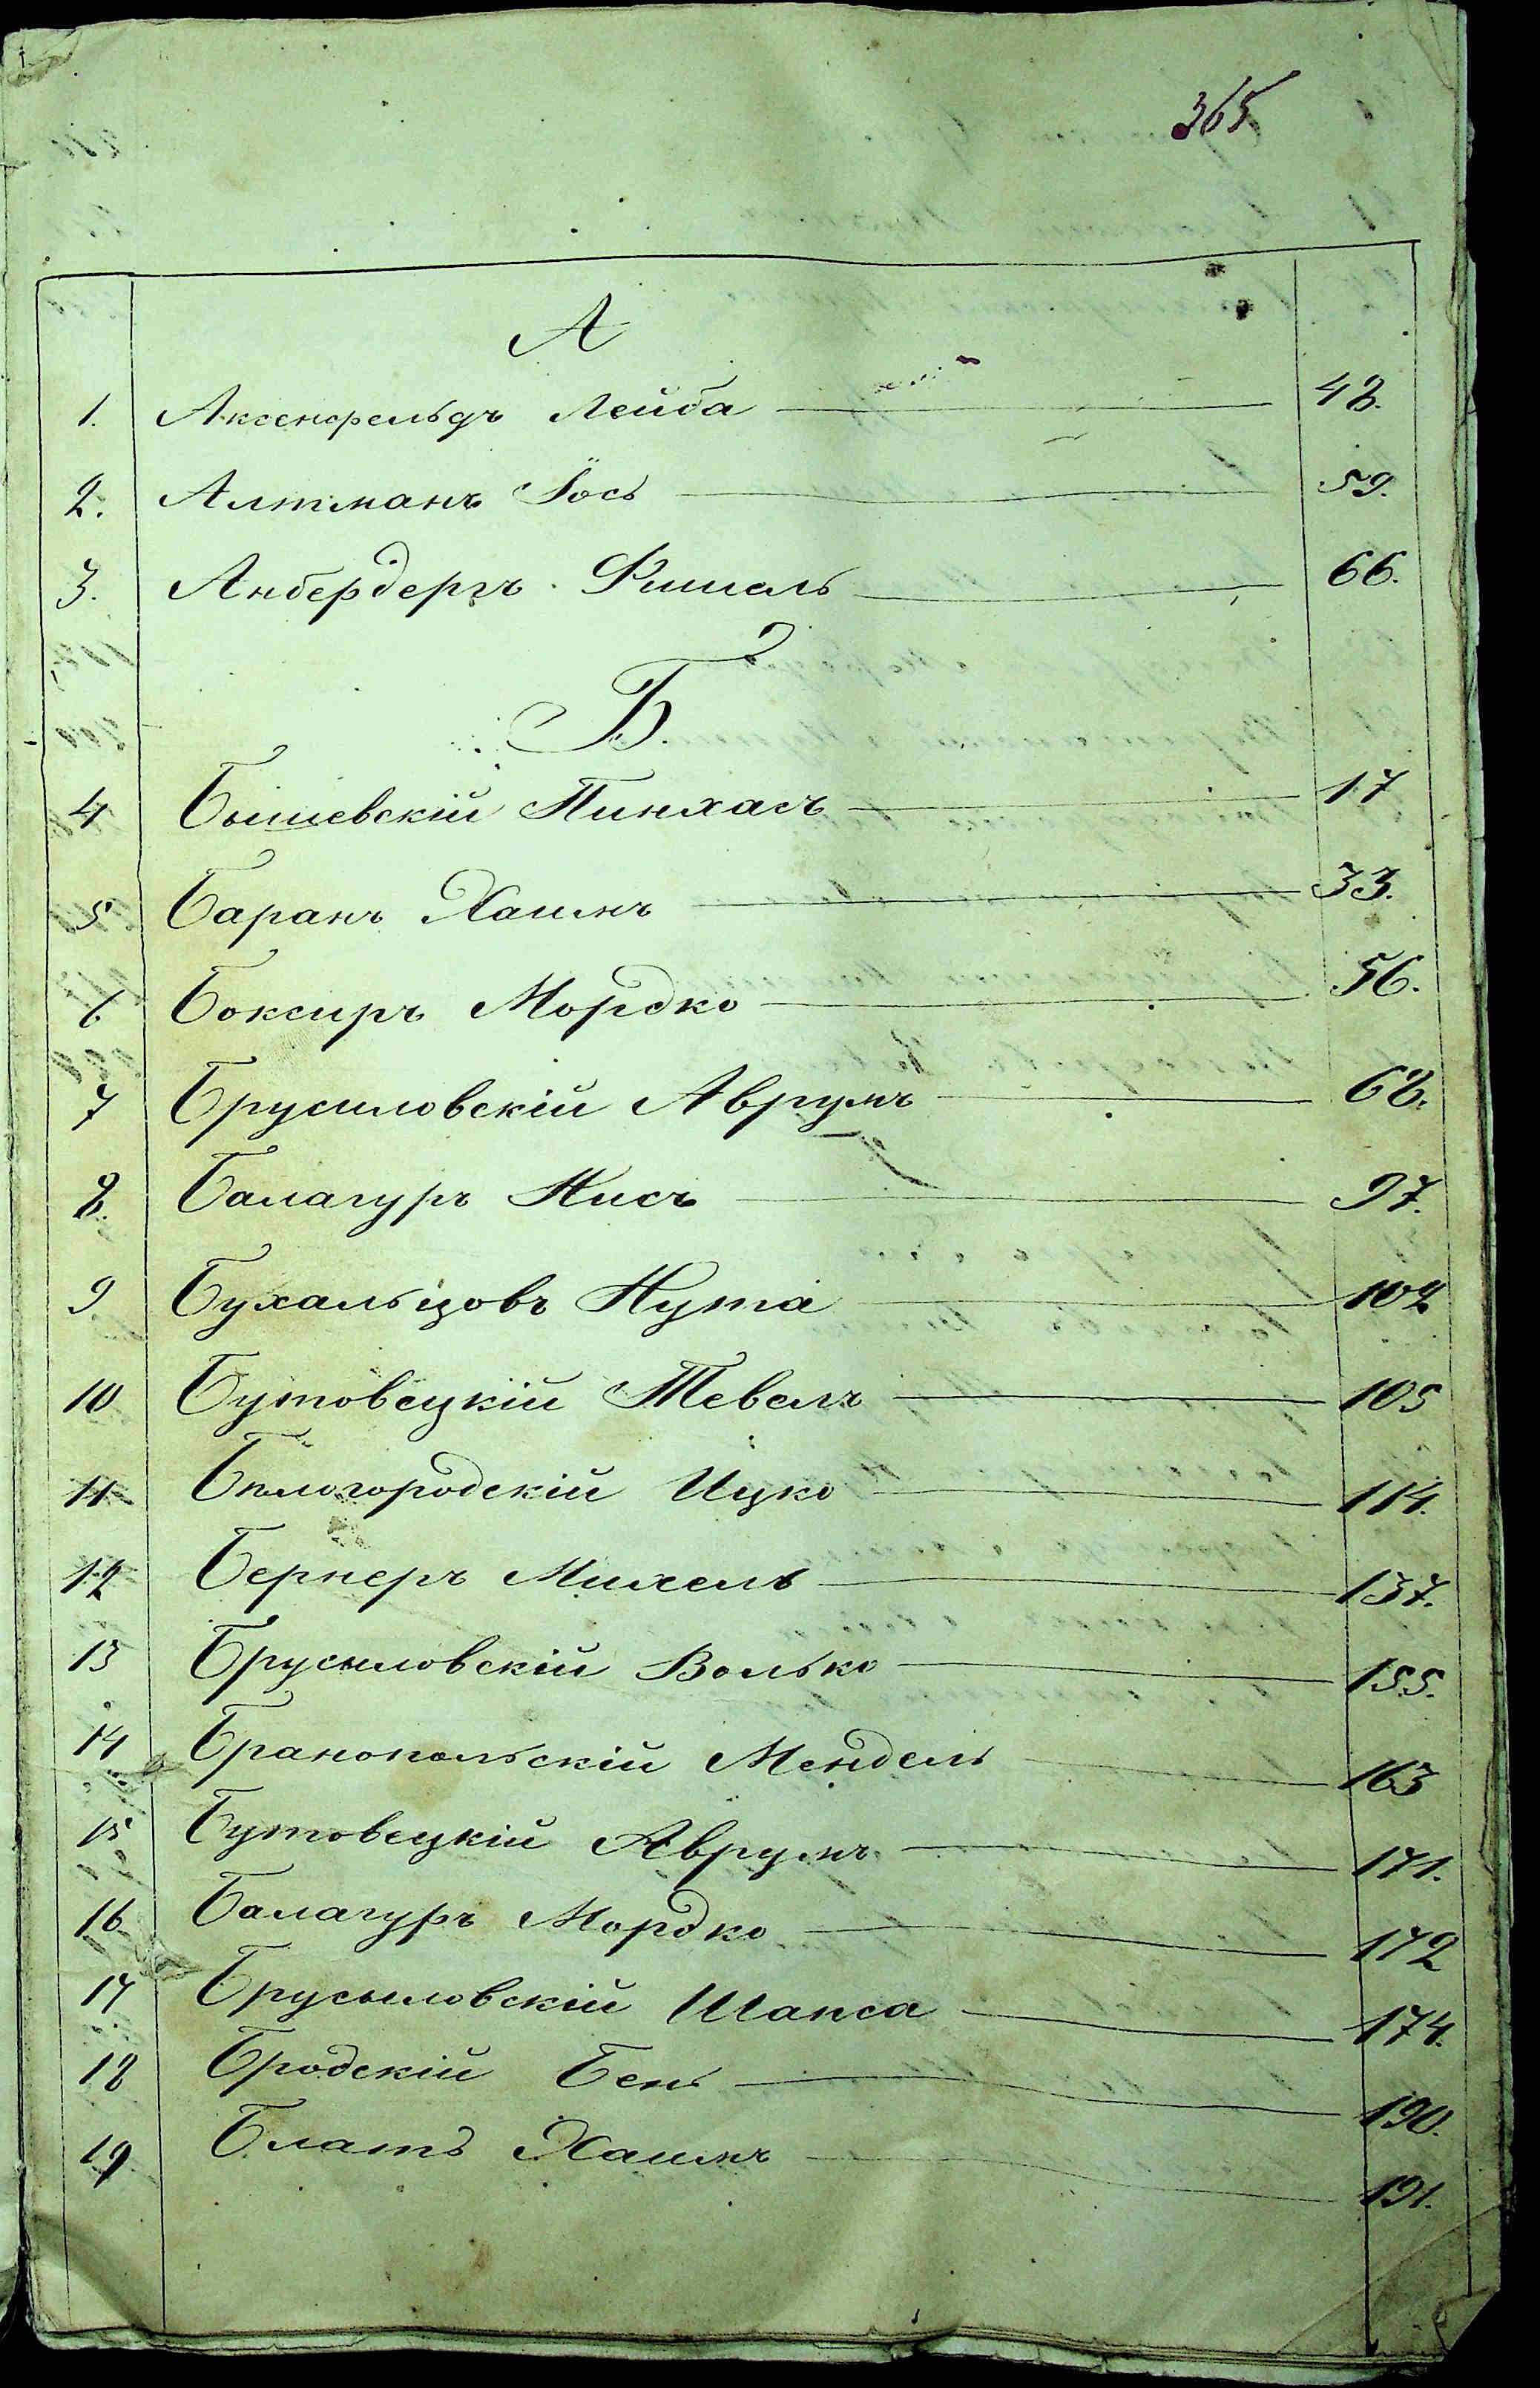 365
А
1. Аксенфельдъ Лейба 48.
2. Алтманъ Іось 59.
3. Анбербергъ Фишель 66.
Б.
4 Бышевскій Пинхасъ 17
5 Баранъ Хаимъ 33.
6 Боксиръ Мордко 56.
7 Брусиловскій Аврумъ 68.
8. Балагуръ Нисъ 97.
9 Бухальцовъ Нута 102
10 Бутовецкій Тевель 105
11 Бѣлогородскій Ицко 114.
12 Бернеръ Михель 137.
13 Брусиловскій Волько 155.
14 Бранопольскій Мендель 163
15 Бутовецкій Аврумъ 171.
16 Балагуръ Мордко 172
17 Брусыловскій Шапса 174.
18 Бродскій Бень 190.
19 Блатъ Хаимъ 191.